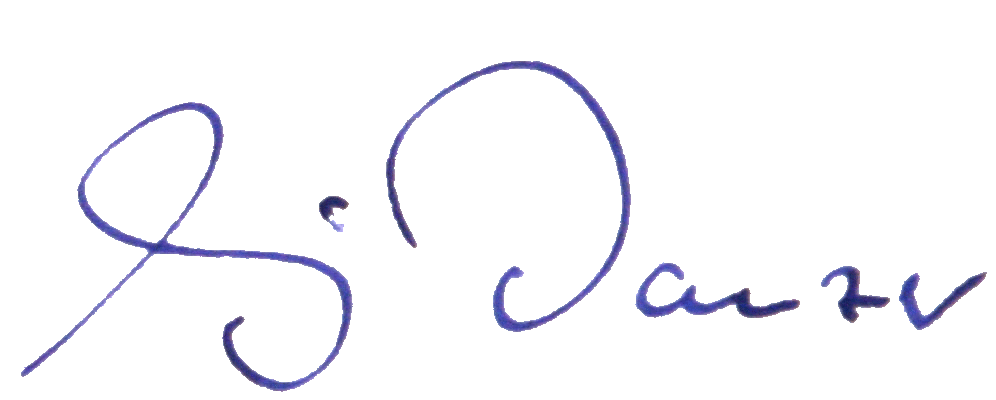 G. Danzer